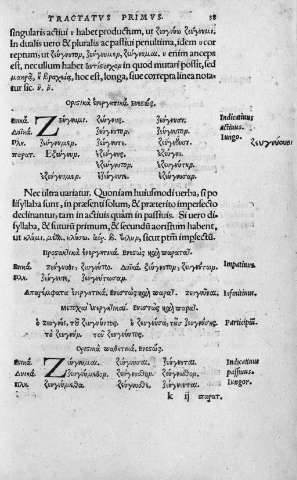 TRACTATVS PRIMVS. 38
singularis actiui υ habet productum, ut ζευγνύω ζεύγνυμι.
In dualis uero & pluralis ac passiui penultima, idem υ cor
reptum, ut ζεύγνυτον, ζεύγνυμεν, ζεύγνυμαι. υ enim anceps
est, nec ullum habet in quod mutari possit, sed
hoc est, longa, siue correpta linea nota
tur sic. ῡ. ῠ.
Ὁριστικὰ ἐνεργητικά. Ἐνεστώς.
Ἑνικά. Ζεύγνυμι. ζεύγνυς. ζεύγνυσι. Indicatiuus
Δυϊκά. ζεύγνυτον. ζεύγνυτον. Actiuus.
Πλη. ζεύγνυμεν. ζεύγνυτε. Iungo.
παρατ. Ἐζεύγνυν. ἐζεύγνυς. ἐζεύγνυ.
ἐζεύγνυτον. ἐζευγνύτην.
ἐζεύγνυμεν. ἐζεύγνυτε. ἐζεύγνυσαν.
Nec ultra uariatur. Quoniam huiusmodi uerba, si po
lisyllaba sunt, in præsenti solum, & præterito imperfecto
declinantur, tam in actiuis quàm in passiuis. Si uero di-
syllaba, & futurū primum, & secundū aoristum habent,
ut κλῦμι, κλύσω. sicut ptm̄ imꝑfectū.
Προστακτικὰ ἐνεργητικά. Ἐνεστὼς καὶ παρατ.
Ἑνικά. ζεύγνυθι, ζευγνύτω. Δυϊκά. ζεύγνυτον, ζευγνύτων. Impatiuus.
Πλη. ζεύγνυτε, ζευγνύτωσαν.
Ἀπαρέμφατα ἐνεργητικά. Ἐνεστὼς καὶ παρατ. ζευγνύναι. Infinitiuus.
Μετοχαὶ ἐνεργητικαί. Ἐνεστὼς καὶ παρατ.
ὁ ζευγνύς, τοῦ ζευγνύντος. ἡ ζευγνῦσα, τῆς ζευγνύσης. Participiū.
τὸ ζευγνύν. τοῦ ζευγνύντος.
Ὁριστικὰ παθητικά. Ἐνεστώς.
Ἑνικά. Ζεύγνυμαι. ζεύγνυσαι. ζεύγνυται. Indicatiuus
Δυϊκά. ζευγνύμεθον. ζεύγνυσθον. ζεύγνυσθον. passiuus.
Πλη. ζευγνύμεθα. ζεύγνυσθε. ζεύγνυνται. Iungor.
k ij παρατ.